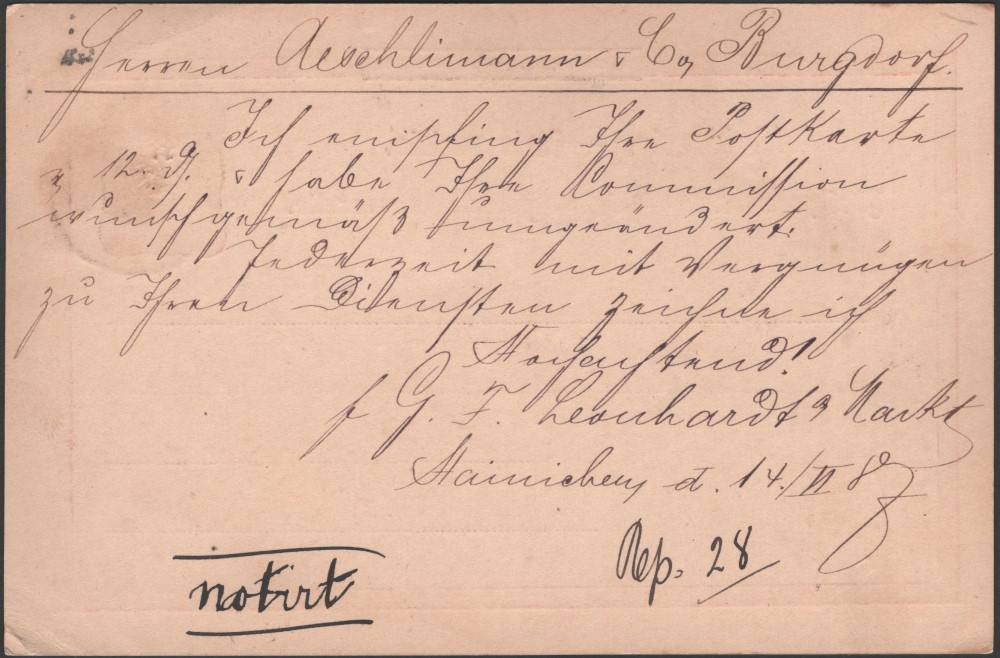 Herren Aeschlimann & Co, Burgdorf.
Ich empfing Ihre Postkarte
v 12. d. & habe Ihre Commission
wunschgemäß umgeändert.
Jederzeit mit Vergnügen
zu Ihren Diensten zeichne ich
Hochachtend!
f G. F. Leonhardt
Hainichen, d. 14./VI 8
Rep. 28
notirt